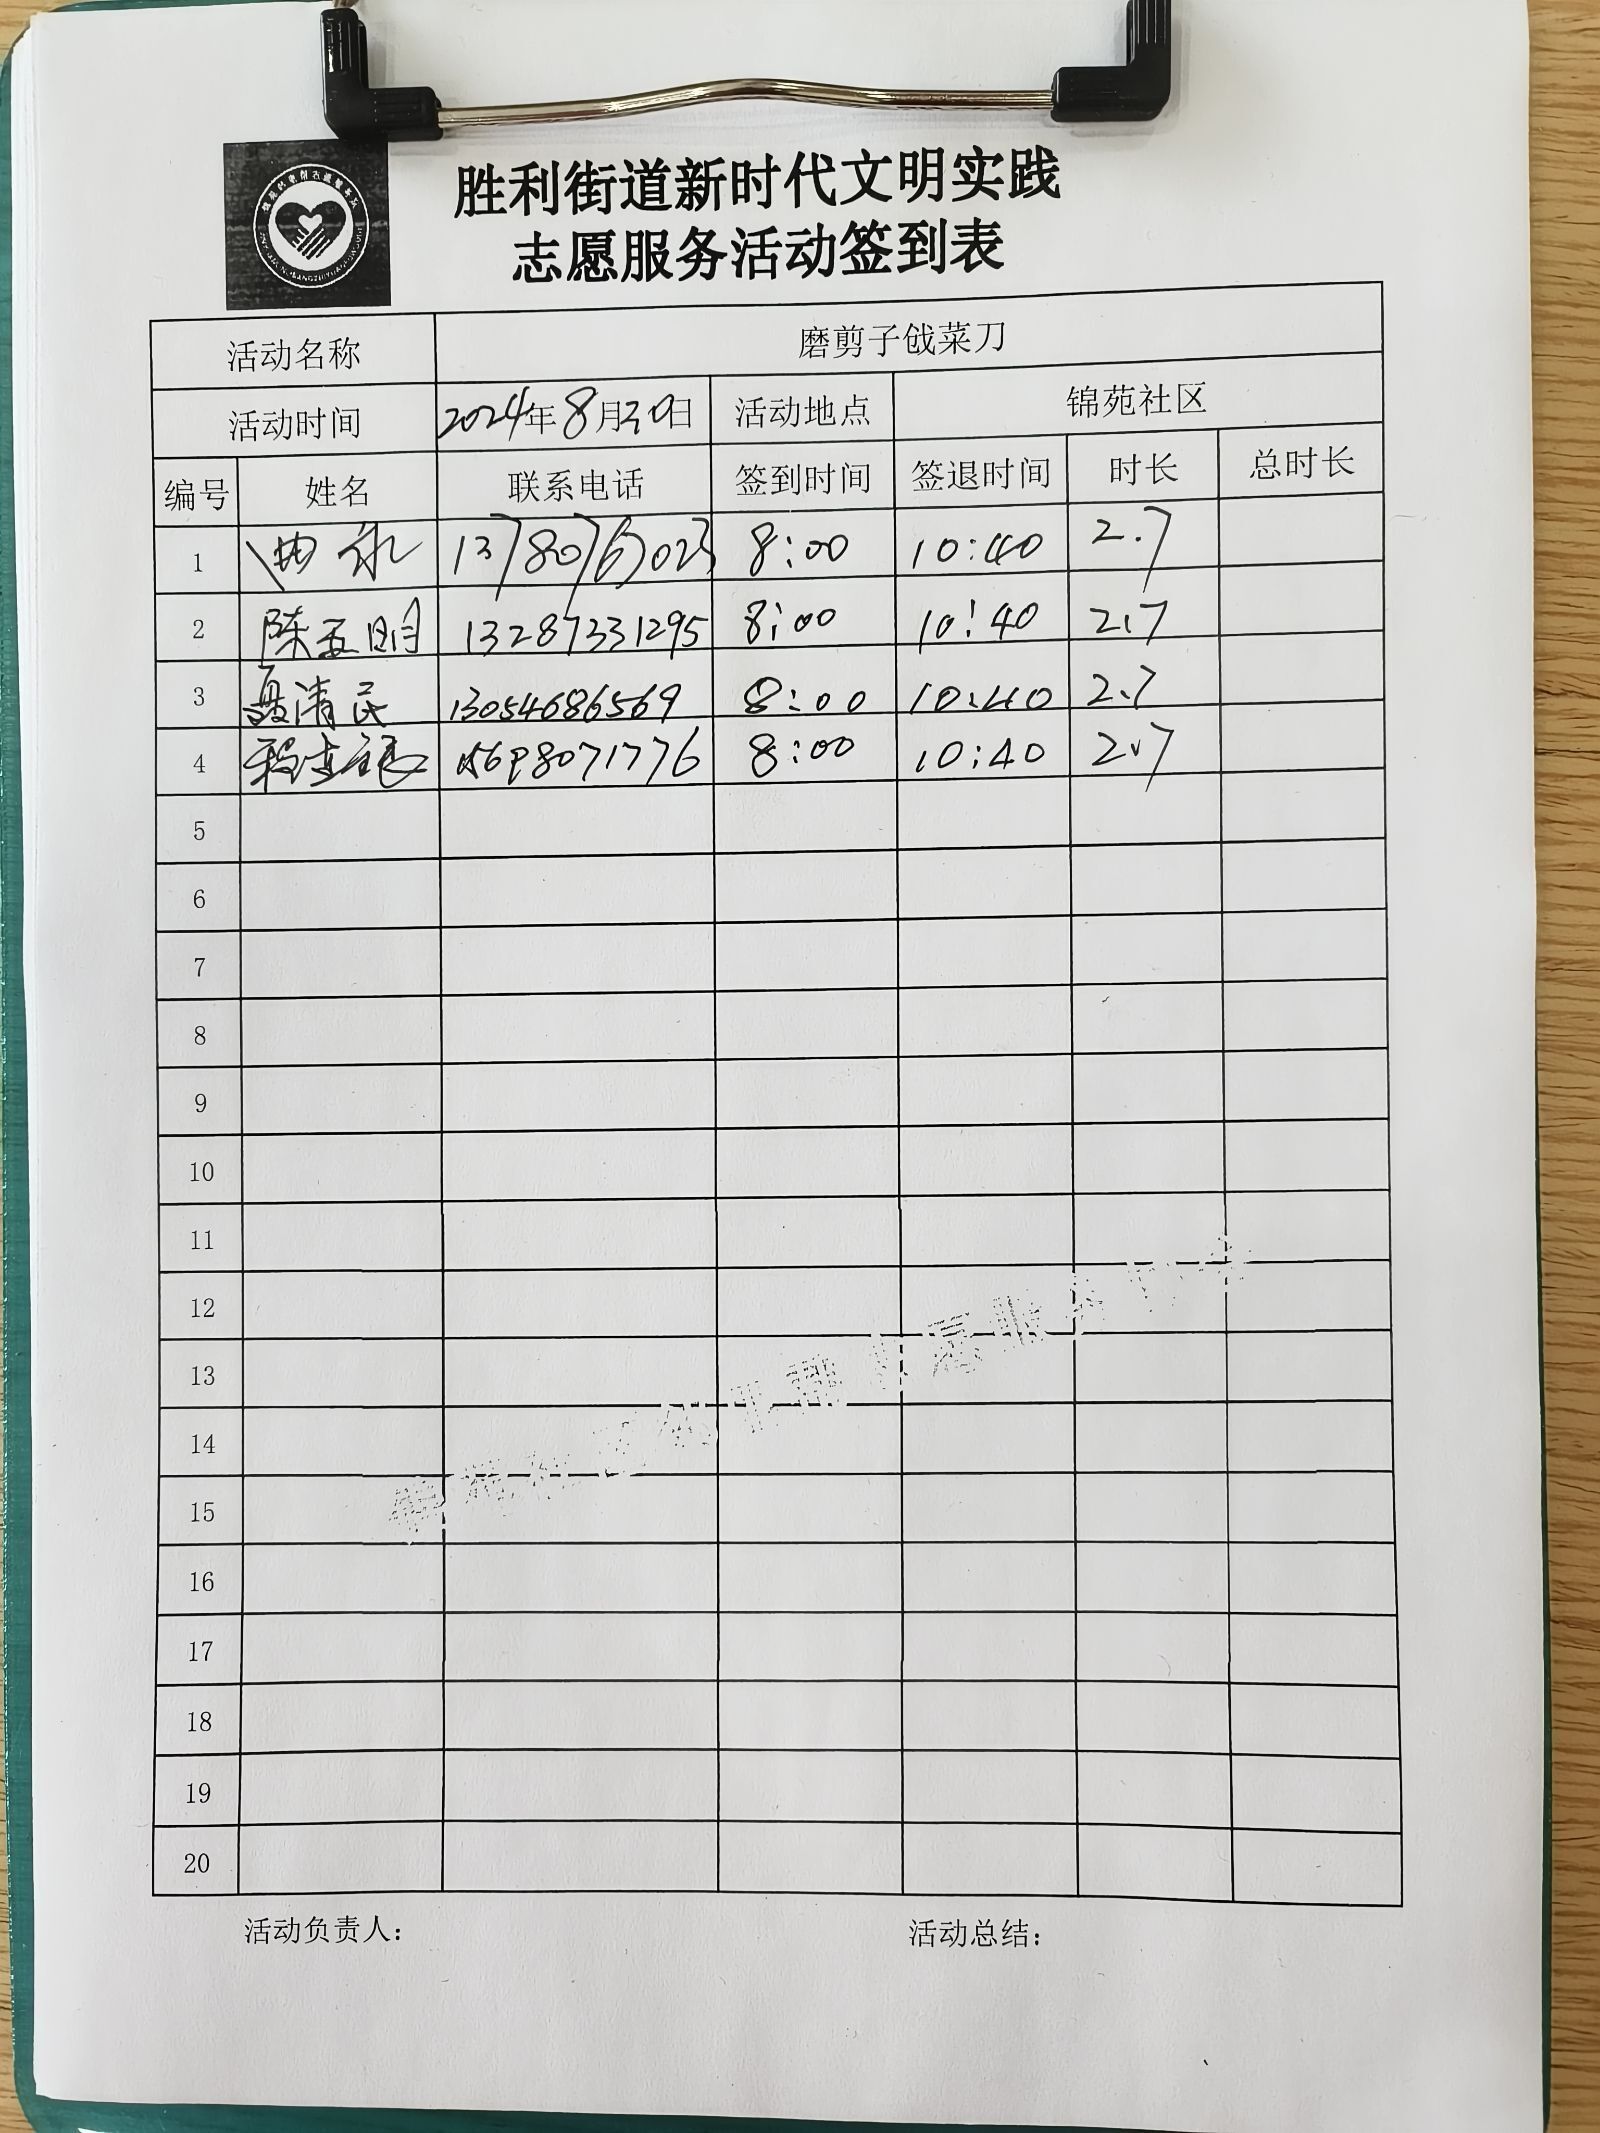 胜利街道新时代文明实践
志愿服务活动签到表
活动名称 磨剪子戗菜刀
活动时间 2024年8月30日 活动地点 锦苑社区
编号 姓名 联系电话 签到时间 签退时间 时长 总时长
1 曲永 8:00 10:40 2.7
2 陈玉明 13287331295 8:00 10:40 2.7
3 聂清民 13054686569 8:00 10:40 2.7
4 8:00 10:40 2.7
5
6
7
8
9
10
11
12
13
14
15
16
17
18
19
20
活动负责人： 活动总结：